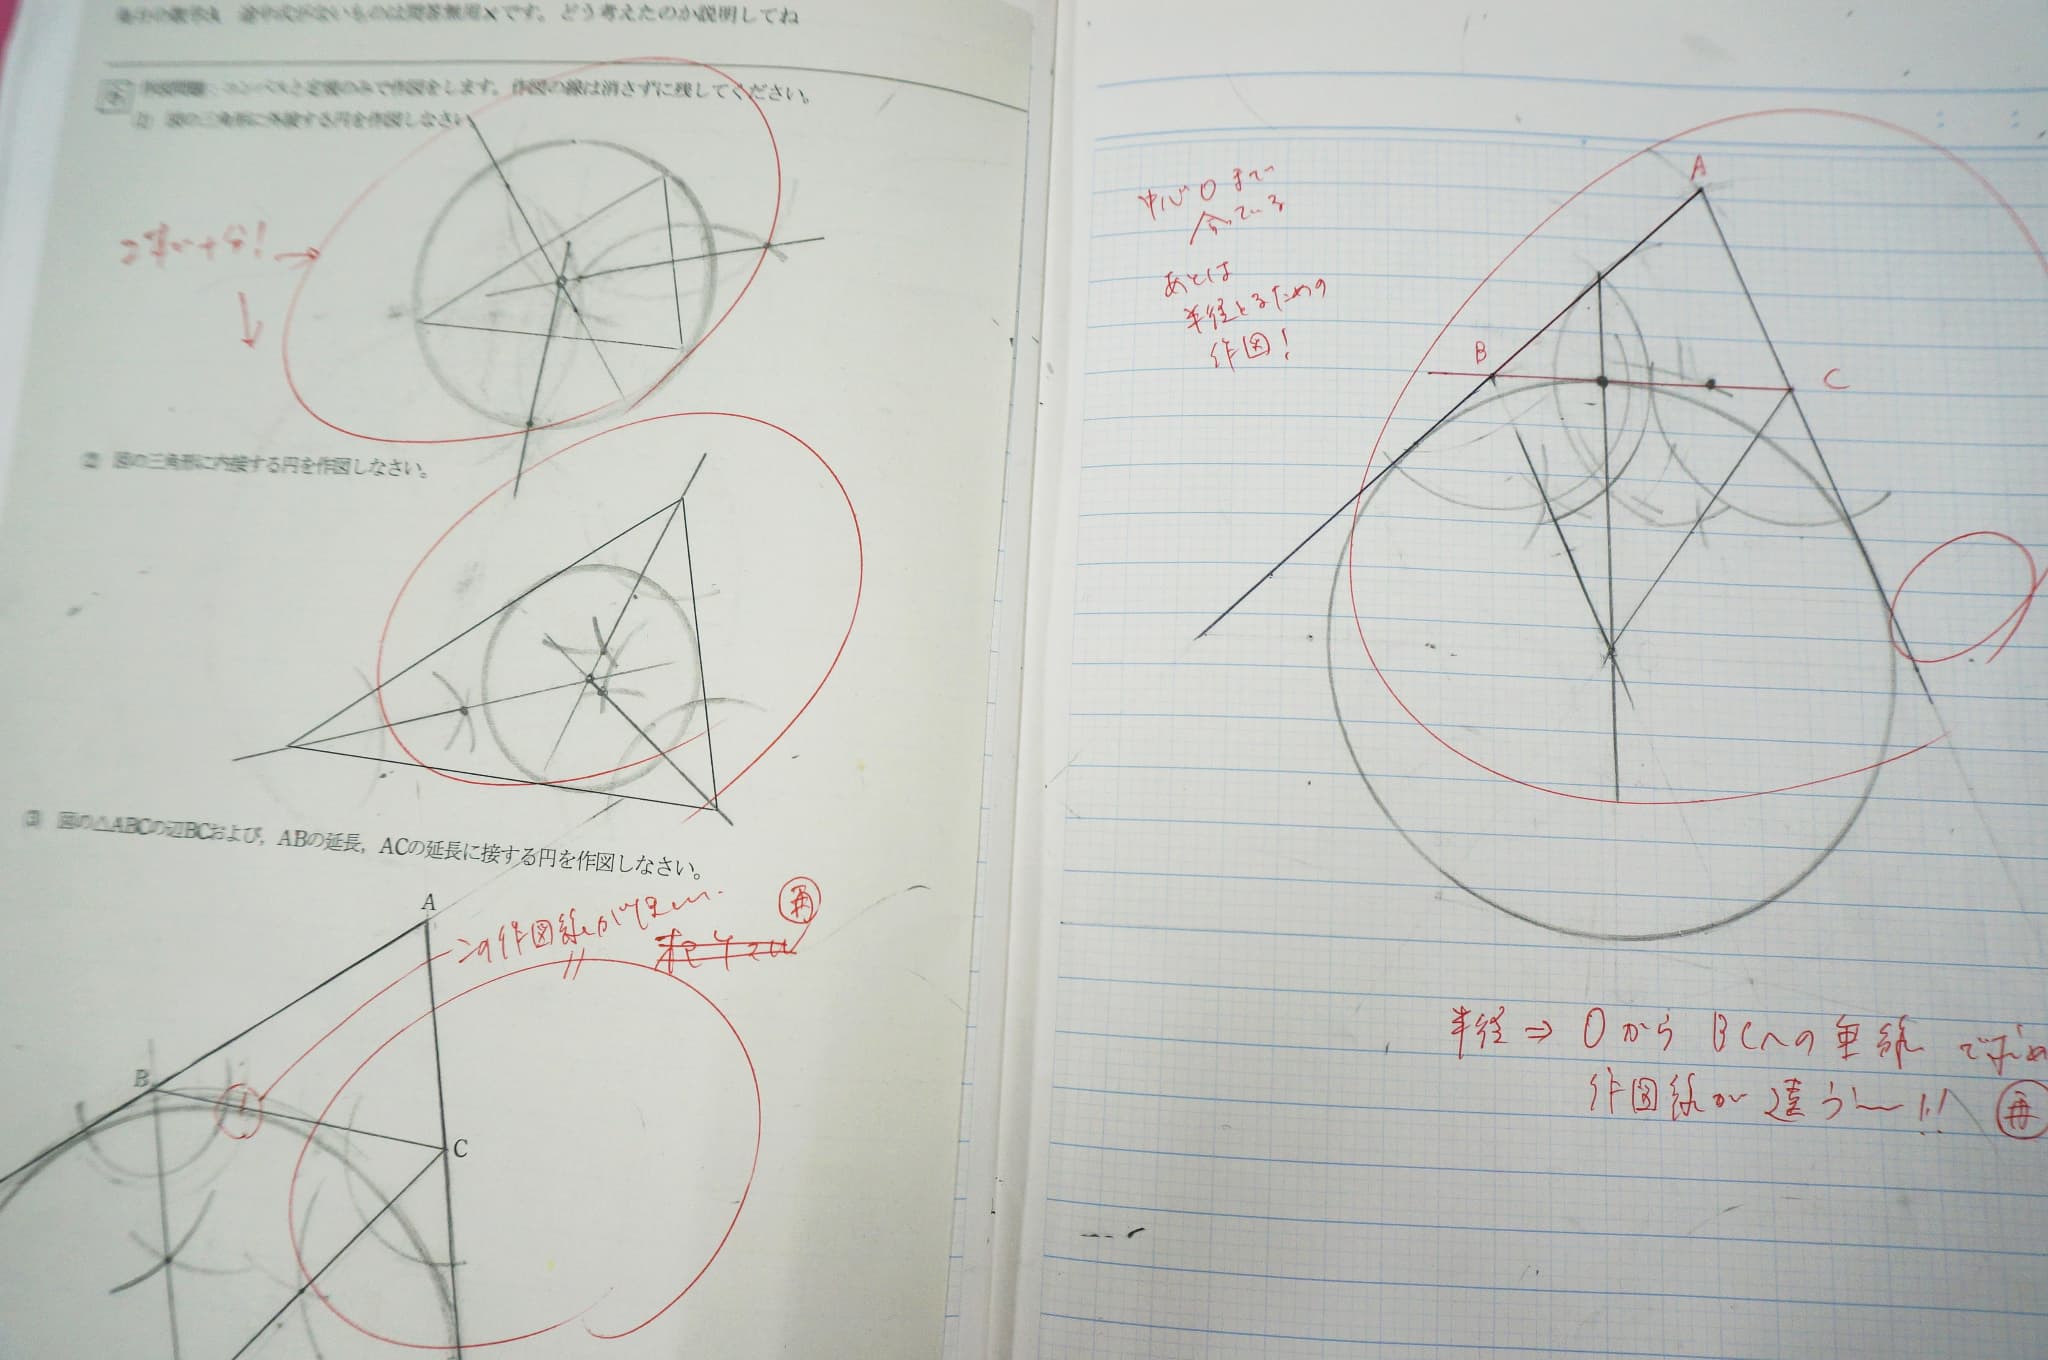 途中式がないものは問答無用×です。どう考えたのか説明してね
作図問題:コンパスと定規のみで作図をします。作図の線は消さずに残してください。
図の三角形に外接する円を作図しなさい
2本で十分!
② 図の三角形に内接する円を作図しなさい。
③ 図の△ABCの辺BCおよび,ABの延長,ACの延長に接する円を作図しなさい。
この作図線が
再
A
B
C
中心Oまで
合っている
あとは
半径とるための
作図!
A
B
C
半径⇒OからBCへの垂線で求め
作図線が違う〜!!
再